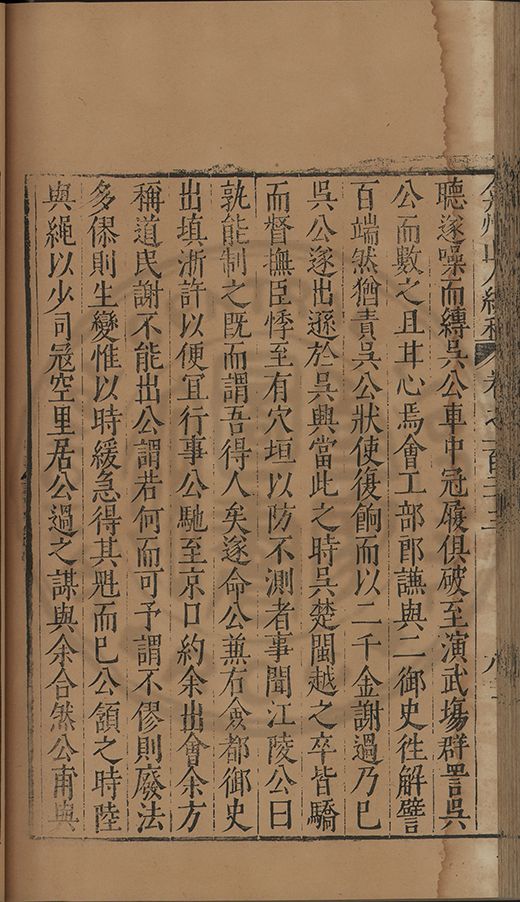 聽遂噪而縛吳公車中冠履俱破至演武塲群詈吳
公而數之且甘心焉會工部郎謙與二御史徃解譬
百端然猶責吳公狀使復餉而以二千金謝過乃巳
吳公遂出遯於吳興當此之時吳楚閩越之卒皆驕
而督撫臣悸至有穴垣以防不測者事聞江陵公曰
孰能制之既而謂吾得人矣遂命公兼右僉都御史
出填浙許以便宜行事公馳至京口約余出會余方
稱道民謝不能出公謂若何而可予謂不僇則廢法
多僇則生變惟以時緩急得其魁而巳公頷之時陸
與繩以少司冦空里居公過之謀與余合然公甫與